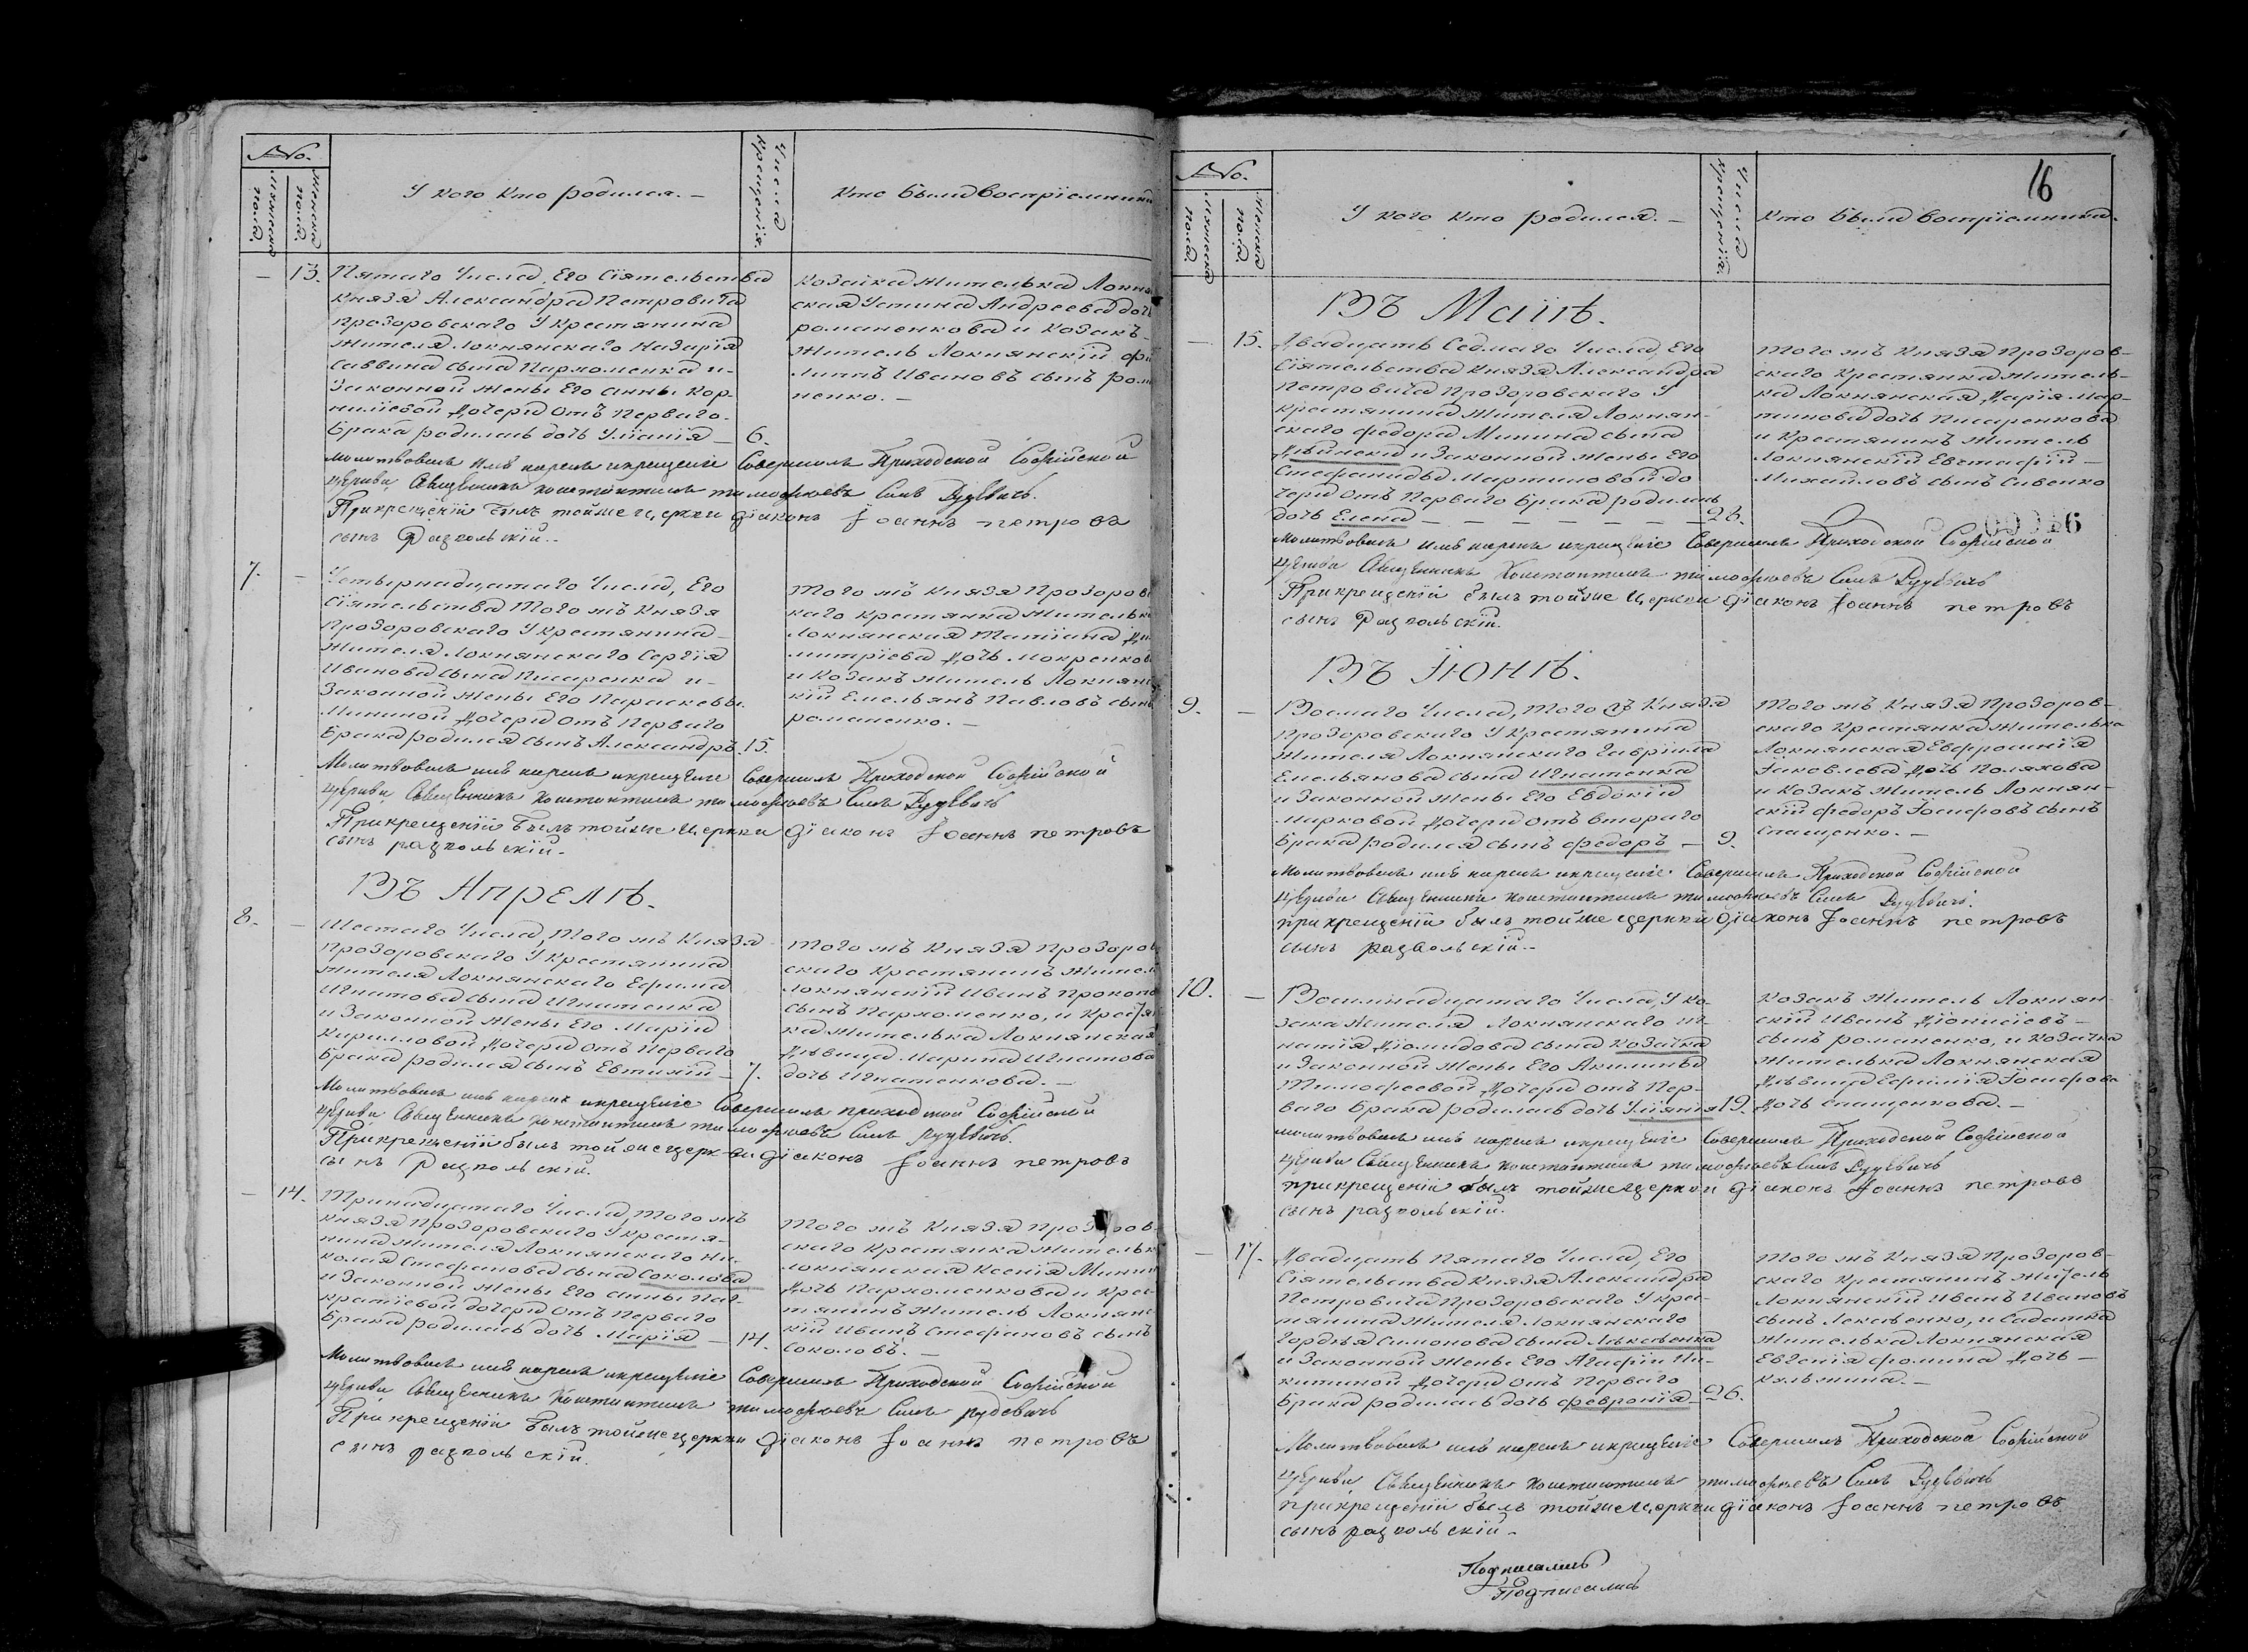 №.
мужеска пола.
женска пола.
У кого кто родился. —
Числа крещенія.
Кто были воспріемники
— 13.
Пятаго Числа, Его Сіятельства
Князя Александра Петровича
Прозоровскаго У Крестянина
Жителя Локнянскаго Назарія
Саввина сына Пархоменка и-
Законной Жены Его Анны Кор-
ниліевой Дочери Отъ Перваго-
Брака родилась дочь Уліанія — 6.
Козачка Жителька Локня
ская Устина Андреева доч
романенкова и Козакъ-
Житель Локнянскій фи
липпъ Ивановъ сынъ ром
ненко. —
молитвовалъ имя нарекъ икрещеніе Совершилъ Приходской Софійской
церкви Священникъ Константинъ тимофѣевъ Сынъ Дудѣвичь.
Прикрещеніи былъ тойже церкви діаконъ Іоаннъ петровъ
сынъ Разпольскій..
7. —
Четырнадцатаго Числа, Его
Сіятельства Того жъ Князя
Прозоровскаго У Крестянина-
Жителя Локнянскаго Сергія
Иванова сына Писаренка и-
Законной Жены Его Параскевы
Мининой Дочери Отъ Перваго
Брака родился сынъ Александръ. 15.
Того жъ Князя Прозоров
каго Крестянка Жителька
Локнянская Татіана Ди
митріева Дочь Мокренков
и Козакъ Житель Локнян
кій Емельянъ Павловъ сынъ
романенко. —
Молитвовалъ имя нарекъ икрещеніе Совершилъ Приходской Софійской
церкви Священникъ Константинъ тимофѣевъ Сынъ Дудѣвичь
Прикрещеніи былъ тойже церкви діаконъ Іоаннъ петровъ
сынъ разпольскій.
Въ Апрелѣ.
8. —
Шестаго Числа, Того жъ Князя
Прозоровскаго У Крестянина
Жителя Локнянскаго Ефима
Игнатова сына Игнатенка
и Законной Жены Его Маріи
Кирилловой Дочери Отъ Перваго
Брака родился сынъ Евтихій — 7.
Того жъ Князя Прозоров
скаго Крестянинъ Жител
Локнянскій Иванъ Прокопо
сынъ Пархоменко, и Крестян
ка Жителька Локнянская
Дѣвица Марина Игнатова
дочь Игнатенкова. —
Молитвовалъ имя нарекъ икрещеніе Совершилъ приходской Софійской
церкви Священникъ Константинъ тимофѣевъ Сынъ Дудѣвичь.
Прикрещеніи былъ тойже церкви діаконъ Іоаннъ петровъ
сынъ Разпольскій.
— 14.
Тринадцатаго Числа, Того жъ
Князя Прозоровскаго У Крестя-
нина Жителя Локнянскаго Ни-
колая Стефанова сына Соколова
и Законной Жены Его Анны Пан-
кратіевой дочери Отъ Перваго
Брака родилась дочь Марія — 14.
Того жъ Князя Прозоров-
скаго Крестянка Жительк
Локнянская Ксенія Минин
Дочь Пархоменкова и Крес-
тянинъ Житель Локнянс
кій Иванъ Стефановъ сынъ
Соколовъ. —
Молитвовалъ имя нарекъ икрещеніе Совершилъ Приходской Софійской
церкви Священникъ Константинъ тимофѣевъ Сынъ Дудевичь
При крещеніи былъ тойже церкви діаконъ Іоаннъ петровъ
сынъ разпольскій.
16
№.
мужеска пола.
женска пола.
У кого кто родился. —
Числа крещенія.
Кто были воспріемники.
Въ Маіѣ.
— 15.
Двадцать Седмаго Числа, Его
Сіятельства Князя Александра
Петровича Прозоровскаго У
Крестянина Жителя Локнян-
скаго федора Минина сына
и Законной Жены Его
Стефаниды Мартиновой до
чери Отъ Перваго Брака родилась
дочь Елена — — — — — — — 28.
Того жъ Князя Прозоров-
скаго Крестянка Житель-
ка Локнянская Дарія Мар-
тинова дочь Писаренкова
и Крестянинъ Житель
Локнянскій Евстафій —
Михайловъ сынъ Савенко
Молитвовалъ имя нарекъ икрещеніе Совершилъ Приходской Софійской
церкви Священникъ Константинъ тимофѣевъ Сынъ Дудѣвичь
Прикрещеніи былъ тойже церкви діаконъ Іоаннъ петровъ
сынъ Разпольскій.
Въ Іюнѣ.
9. —
Восмаго Числа, Того жъ Князя
Прозоровскаго У Крестянина
Жителя Локнянскаго Гавріила
Емельянова сына Игнатенка
и Законной Жены Его Евдокіи
Марковой Дочери Отъ втораго
Брака родился сынъ федоръ — 9.
Того жъ Князя Прозоров-
скаго Крестянка Жителька
Локнянская Евфросинія
Іаковлева Дочь Поляхова
и Козакъ Житель Локнян-
скій федоръ Іосифовъ сынъ
Спащенко. —
Молитвовалъ имя нарекъ икрещеніе Совершилъ Приходской Софійской
церкви Священникъ Константинъ тимофѣевъ Сынъ Дудѣвичь.
прикрещеніи былъ тойже церкви діаконъ Іоаннъ петровъ
сынъ разпольскій..
10. —
Восимнадцатаго Числа, У Ко-
зака Жителя Локнянскаго Иг-
натія Діомидова сына Козачка
и Законной Жены Его Акилины
Тимофеевой Дочери Отъ Пер-
ваго Брака родилась дочь Уліянія 19.
Козакъ Житель Локнян-
скій Иванъ Діонисіевъ —
сынъ романенко, и Козачка
Жителька Локнянская
Дѣвица Ефимія Іосифова
Дочь Спащенкова. —
молитвовалъ имя нарекъ икрещеніе Совершилъ Приходской Софійской
церкви Священникъ Константинъ тимофѣевъ Сынъ Дудѣвичь
прикрещеніи былъ тойже церкви діаконъ Іоаннъ петровъ
сынъ разпольскій.
— 17.
Двадцать Пятаго Числа, Его
Сіятельства Князя Александра
Петровича Прозоровскаго У Крес-
тянина Жителя Локнянскаго
Гордѣя Симонова сына
и Законной Жены Его Агафіи Ни-
китиной Дочери Отъ Перваго
Брака родилась дочь февронія — 26.
Того жъ Князя Прозоров-
скаго Крестянинъ Житель
Локнянскій Иванъ Ивановъ
сынъ и Салдатка
Жителька Локнянская
Евгенія фомина Дочь —
Молитвовалъ имя нарекъ икрещеніе Совершилъ Приходской Софійской
церкви Священникъ Константинъ тимофѣевъ Сынъ Дудѣвичь
прикрещеніи былъ тойже церкви діаконъ Іоаннъ петровъ
сынъ разпольскій.
Подписались
Подписались